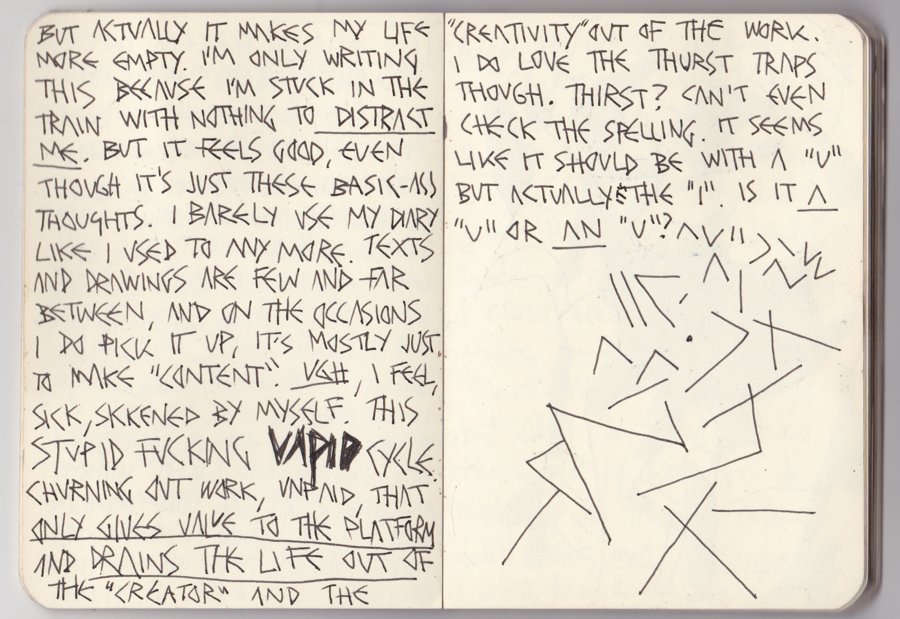 BUT ACTUALLY IT MAKES MY LIFE
MORE EMPTY. I'M ONLY WRITING
THIS BECAUSE I'M STUCK IN THE
TRAIN WITH NOTHING TO DISTRACT
ME. BUT IT FEELS GOOD, EVEN
THOUGH IT'S JUST THESE BASIC-ASS
THOUGHTS. I BARELY USE MY DIARY
LIKE I USED TO ANY MORE. TEXTS
AND DRAWINGS ARE FEW AND FAR
BETWEEN, AND ON THE OCCASIONS
I DO PICK IT UP, IT'S MOSTLY JUST
TO MAKE "CONTENT". UGH, I FEEL,
SICK, SKKENED BY MYSELF. THIS
STUPID FUCKING VAPID CYCLE.
CHURNING OUT WORK, UNPAID, THAT
ONLY GIVES VALUE TO THE PLATFORM
AND DRAINS THE LIFE OUT OF
THE "CREATOR" AND THE
"CREATIVITY" OUT OF THE WORK.
I DO LOVE THE THURST TRAPS
THOUGH. THIRST? CAN'T EVEN
CHECK THE SPELLING. IT SEEMS
LIKE IT SHOULD BE WITH A "U"
BUT ACTUALLY & THE "I". IS IT A
"U" OR AN "U"?